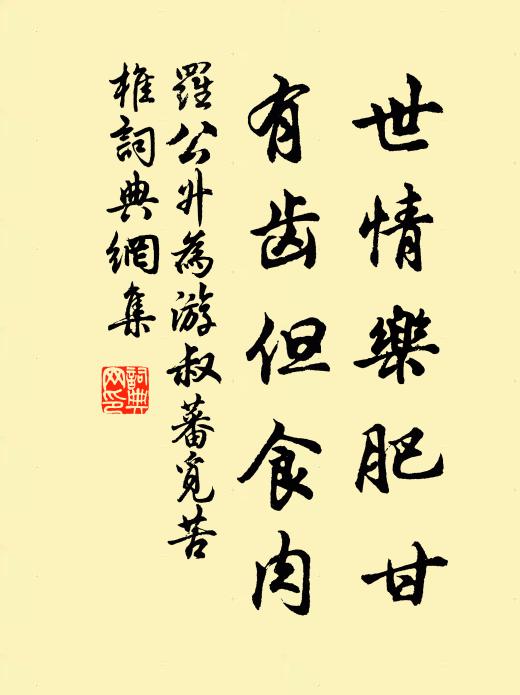 世情樂肥甘
有齿但食肉
羅公升為游叔蕃覓苦
椎詞典網集
詞典网印